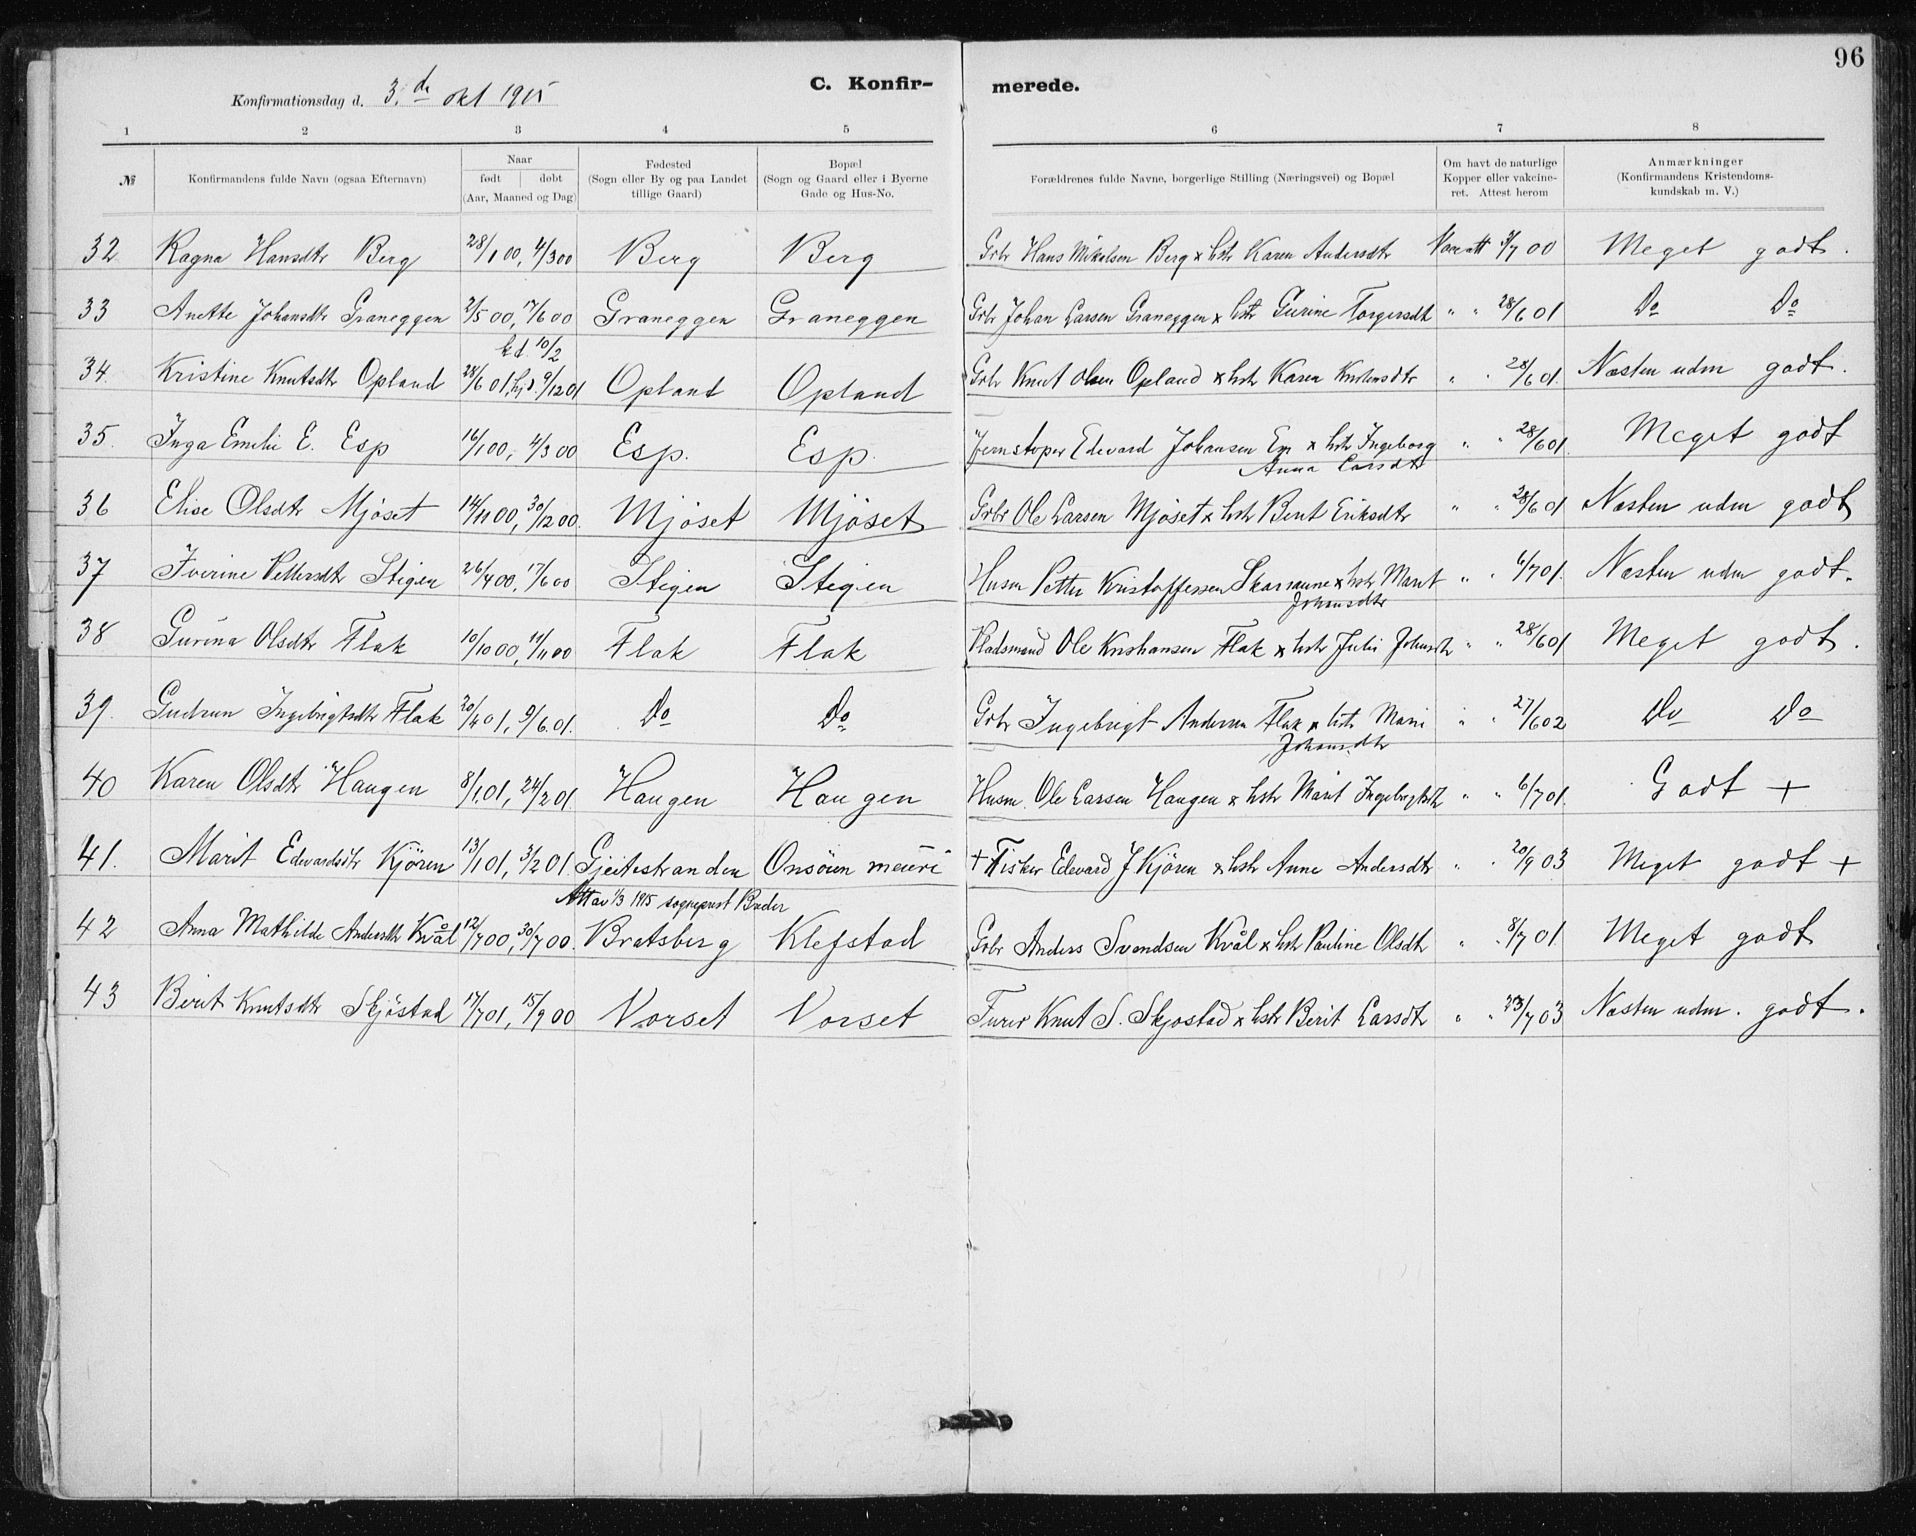 96
C. Konfir- merede.
Konfirmationsdag d. 3.de okt 1915
1 2 3 4 5 6 7 8
№
Konfirmandens fulde Navn (ogsaa Efternavn)
Naar
født døbt
(Aar, Maaned og Dag)
Fødested
(Sogn eller By og paa Landet
tillige Gaard)
Bopæl
(Sogn og Gaard eller i Byerne
Gade og Hus-No.
Forældrenes fulde Navne, borgerlige Stilling (Næringsvei) og Bopæl
Om havt de naturlige
Kopper eller vakcine-
ret. Attest herom
Anmærkninger
(Konfirmandens Kristendoms-
kundskab m. V.)
32 Ragna Hansdtr Berg 28/1 00, 4/3 00 Berg Berg Grbr Hans Mikelsen Berg x hstr Karen Andersdtr Vacatt /7 00 Meget godt.
33 Anette Johansdtr Graneggen 2/5 00, 17/6 00 Graneggen Graneggen Grbr Johan Larsen Graneggen x hstr Gurine Torgersdt " " 28/6 01 Do Do
k.d. 10/2
34. Kristine Knutsdtr Opland 28/6 01, hj.d. 9/12 01 Opland Opland Grbr Knut Olsen Opland x hstr Karen Knutensdtr " " 28/6 01. Næsten udm godt.
35. Inga Emelie E. Esp 16/1 00, 4/3 00 Esp. Esp. Jernstøper Edevard Johansen Esp x hstr Ingeborg " " 28/6 01. Meget godt
Anna Larsdt
36 Elise Olsdtr Mjøset 14/11 00, 30/12 00. Mjøset Mjøset Grbr Ole Larsen Mjøset x hstr Berit Eriksdtr " " 28/6 01 Næsten udm godt
37 Iverine Pettersdtr Stigen 26/4 00, 17/6 00 Stigen Stigen Husm Petter Kristoffersen Skarsaune x hstr Marit " " 6/7 01. Næsten udm godt.
Johansdtr
38 Gurina Olsdtr Flak 10/10 00, 11/11 00 Flak Flak Pladsmand Ole Kristiansen Flak x hstr Julie Johansdtr " " 28/6 01 Meget godt.
39. Gudrun Ingebrigtsdtr Flak 20/4 01, 9/6 01. Do Do Grbr Ingebrigt Andersen Flak x hstr Marie " " 27/6 02 Do Do
Johansdtr
40 Karen Olsdtr Haugen 8/1 01, 24/2 01. Haugen Haugen Husm. Ole Larsen Haugen x hstr Marit Ingebrigtsdtr " " 6/7 01. Godt +
41. Marit Edevardsdtr Kjøren 13/1 01, 3/2 01 Gjeitestranden Onsøien meieri + Fisker Edevard J Kjøren x hstr Anne Andersdtr " " 20/9 03 Meget godt +
Att av 1/3 1915 sogneprest Buder
42 Anna Mathilde Andersdtr Kvål 12/7 00, 30/7 00. Bratsberg Klefstad Grbr Anders Svendsen Kvål x hstr Pauline Olsdtr " " 8/7 01. Meget godt
43 Berit Knutsdtr Skjøstad 17/7 01, 15/9 00 Vorset Vorset Furer Knut S. Skjøstad x hstr Berit Larsdtr " " 23/7 03 Næsten udm. godt.